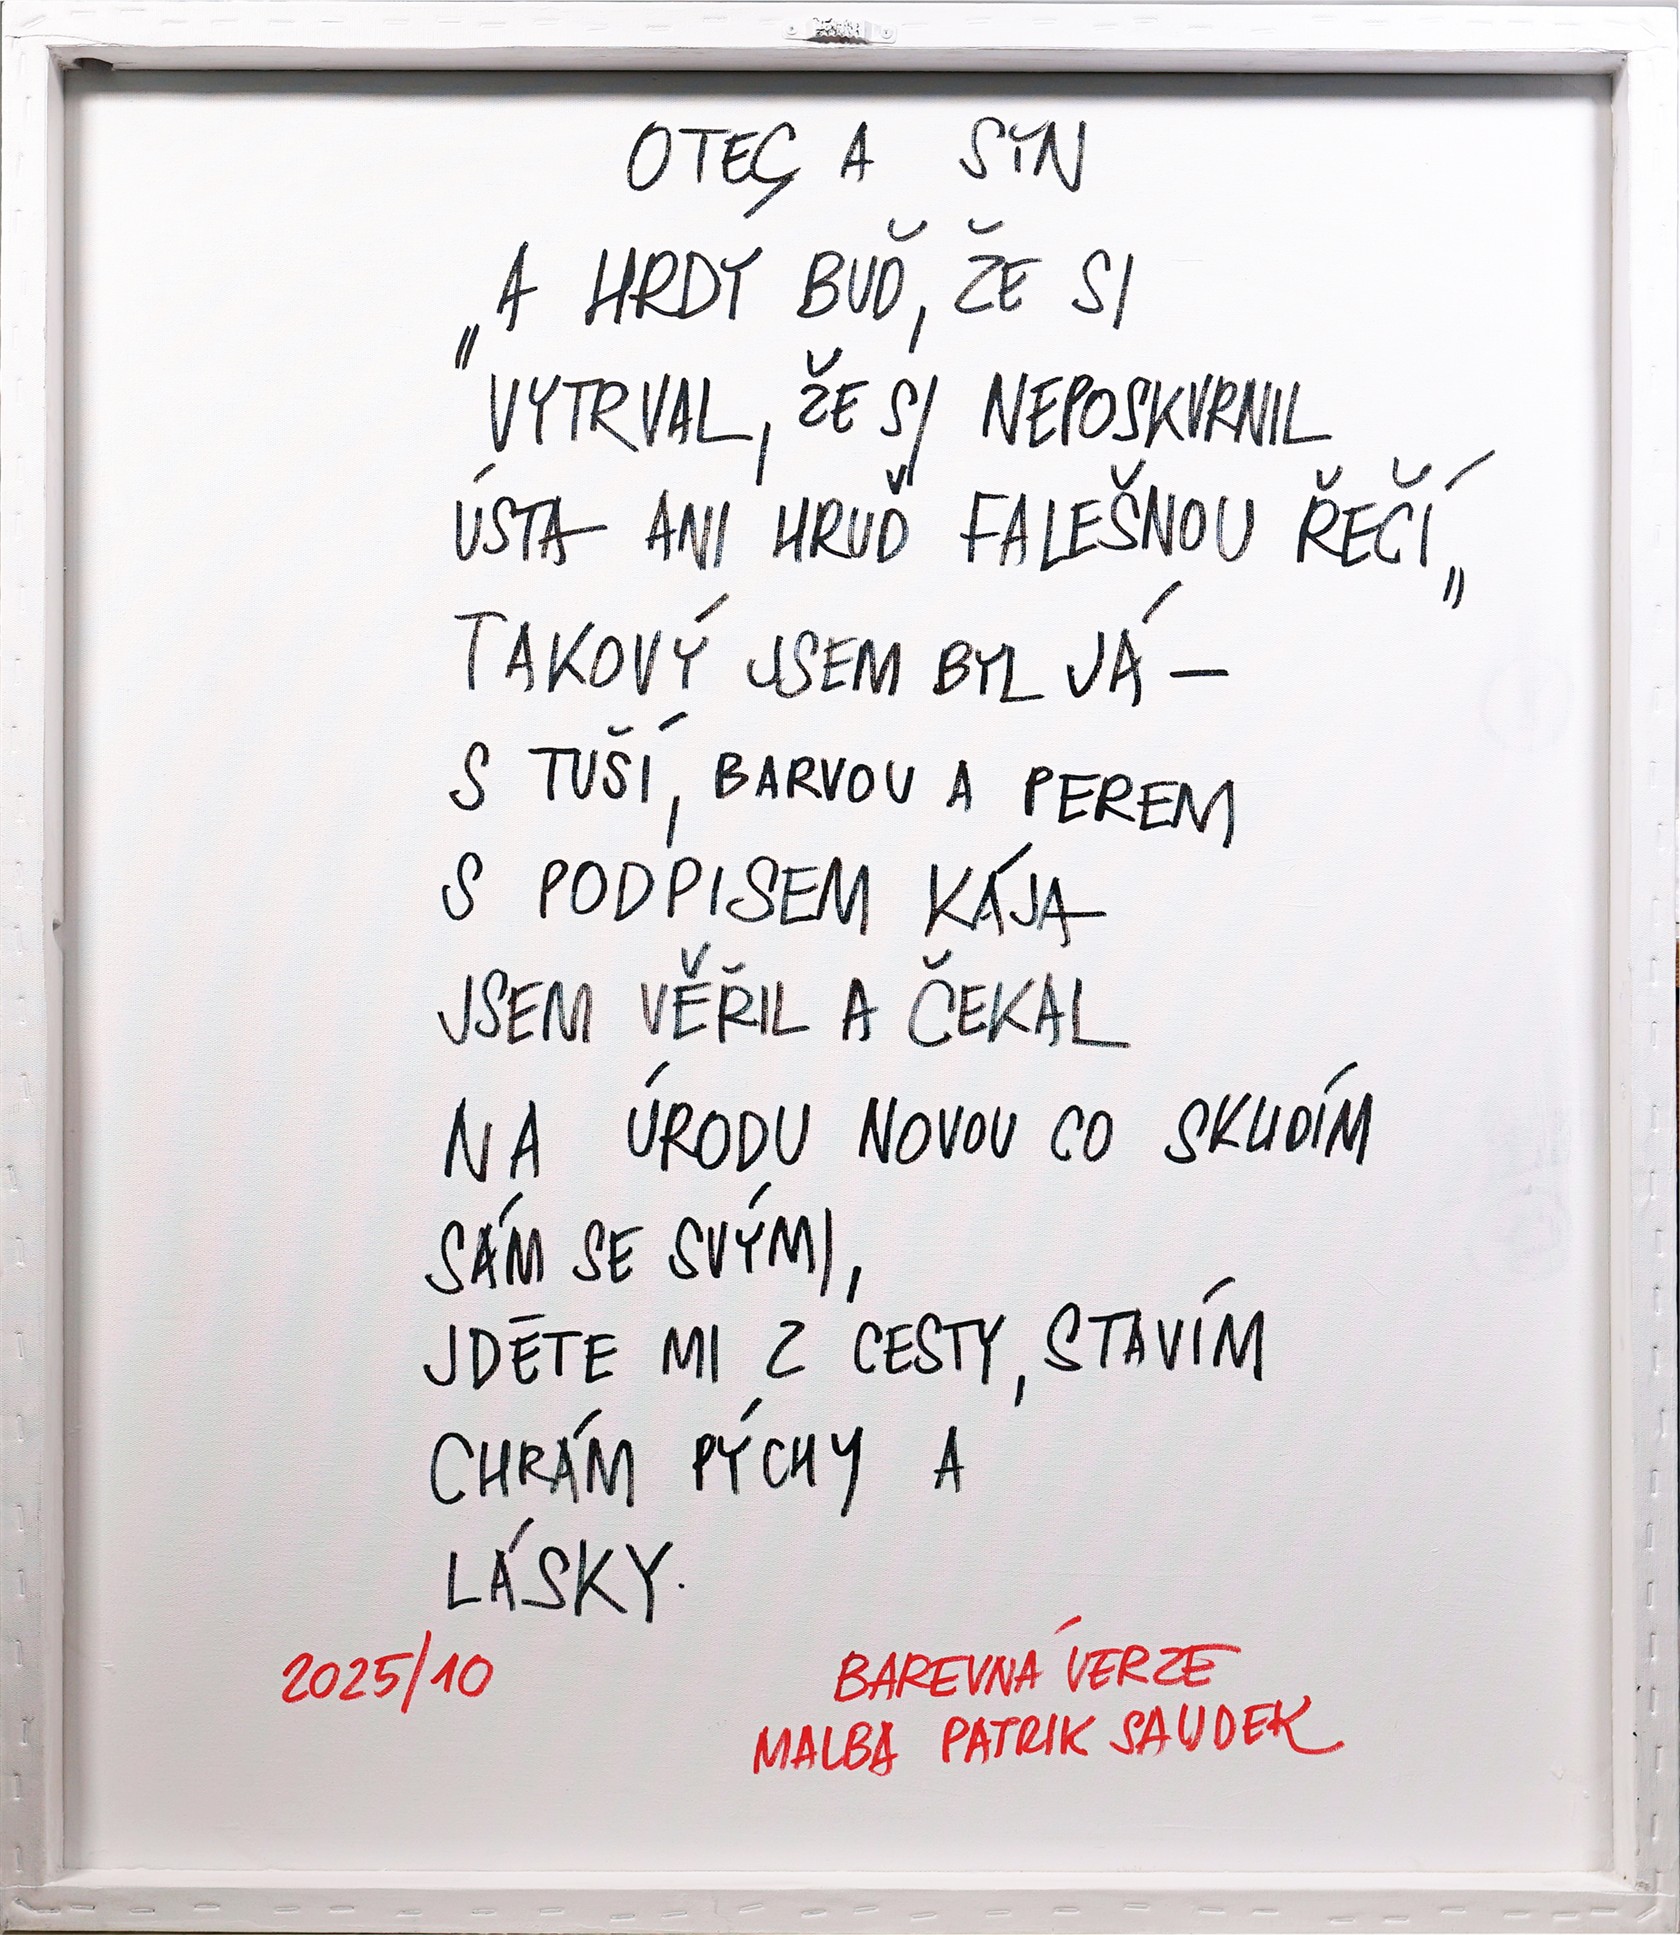 OTEC A SYN
„A HRDÝ BUĎ, ŽE SI
VYTRVAL, ŽE SI NEPOSKVRNIL
ÚSTA ANI HRUĎ FALEŠNOU ŘEČÍ„
TAKOVÝ JSEM BYL JÁ –
S TUŠÍ, BARVOU A PEREM
S PODPISEM KÁJA
JSEM VĚŘIL A ČEKAL
NA ÚRODU NOVOU CO SKLIDÍM
SÁM SE SVÝMI,
JDĚTE MI Z CESTY, STAVÍM
CHRÁM PÝCHY A
LÁSKY.
2025/10 BAREVNÁ VERZE
MALBA PATRIK SAUDEK